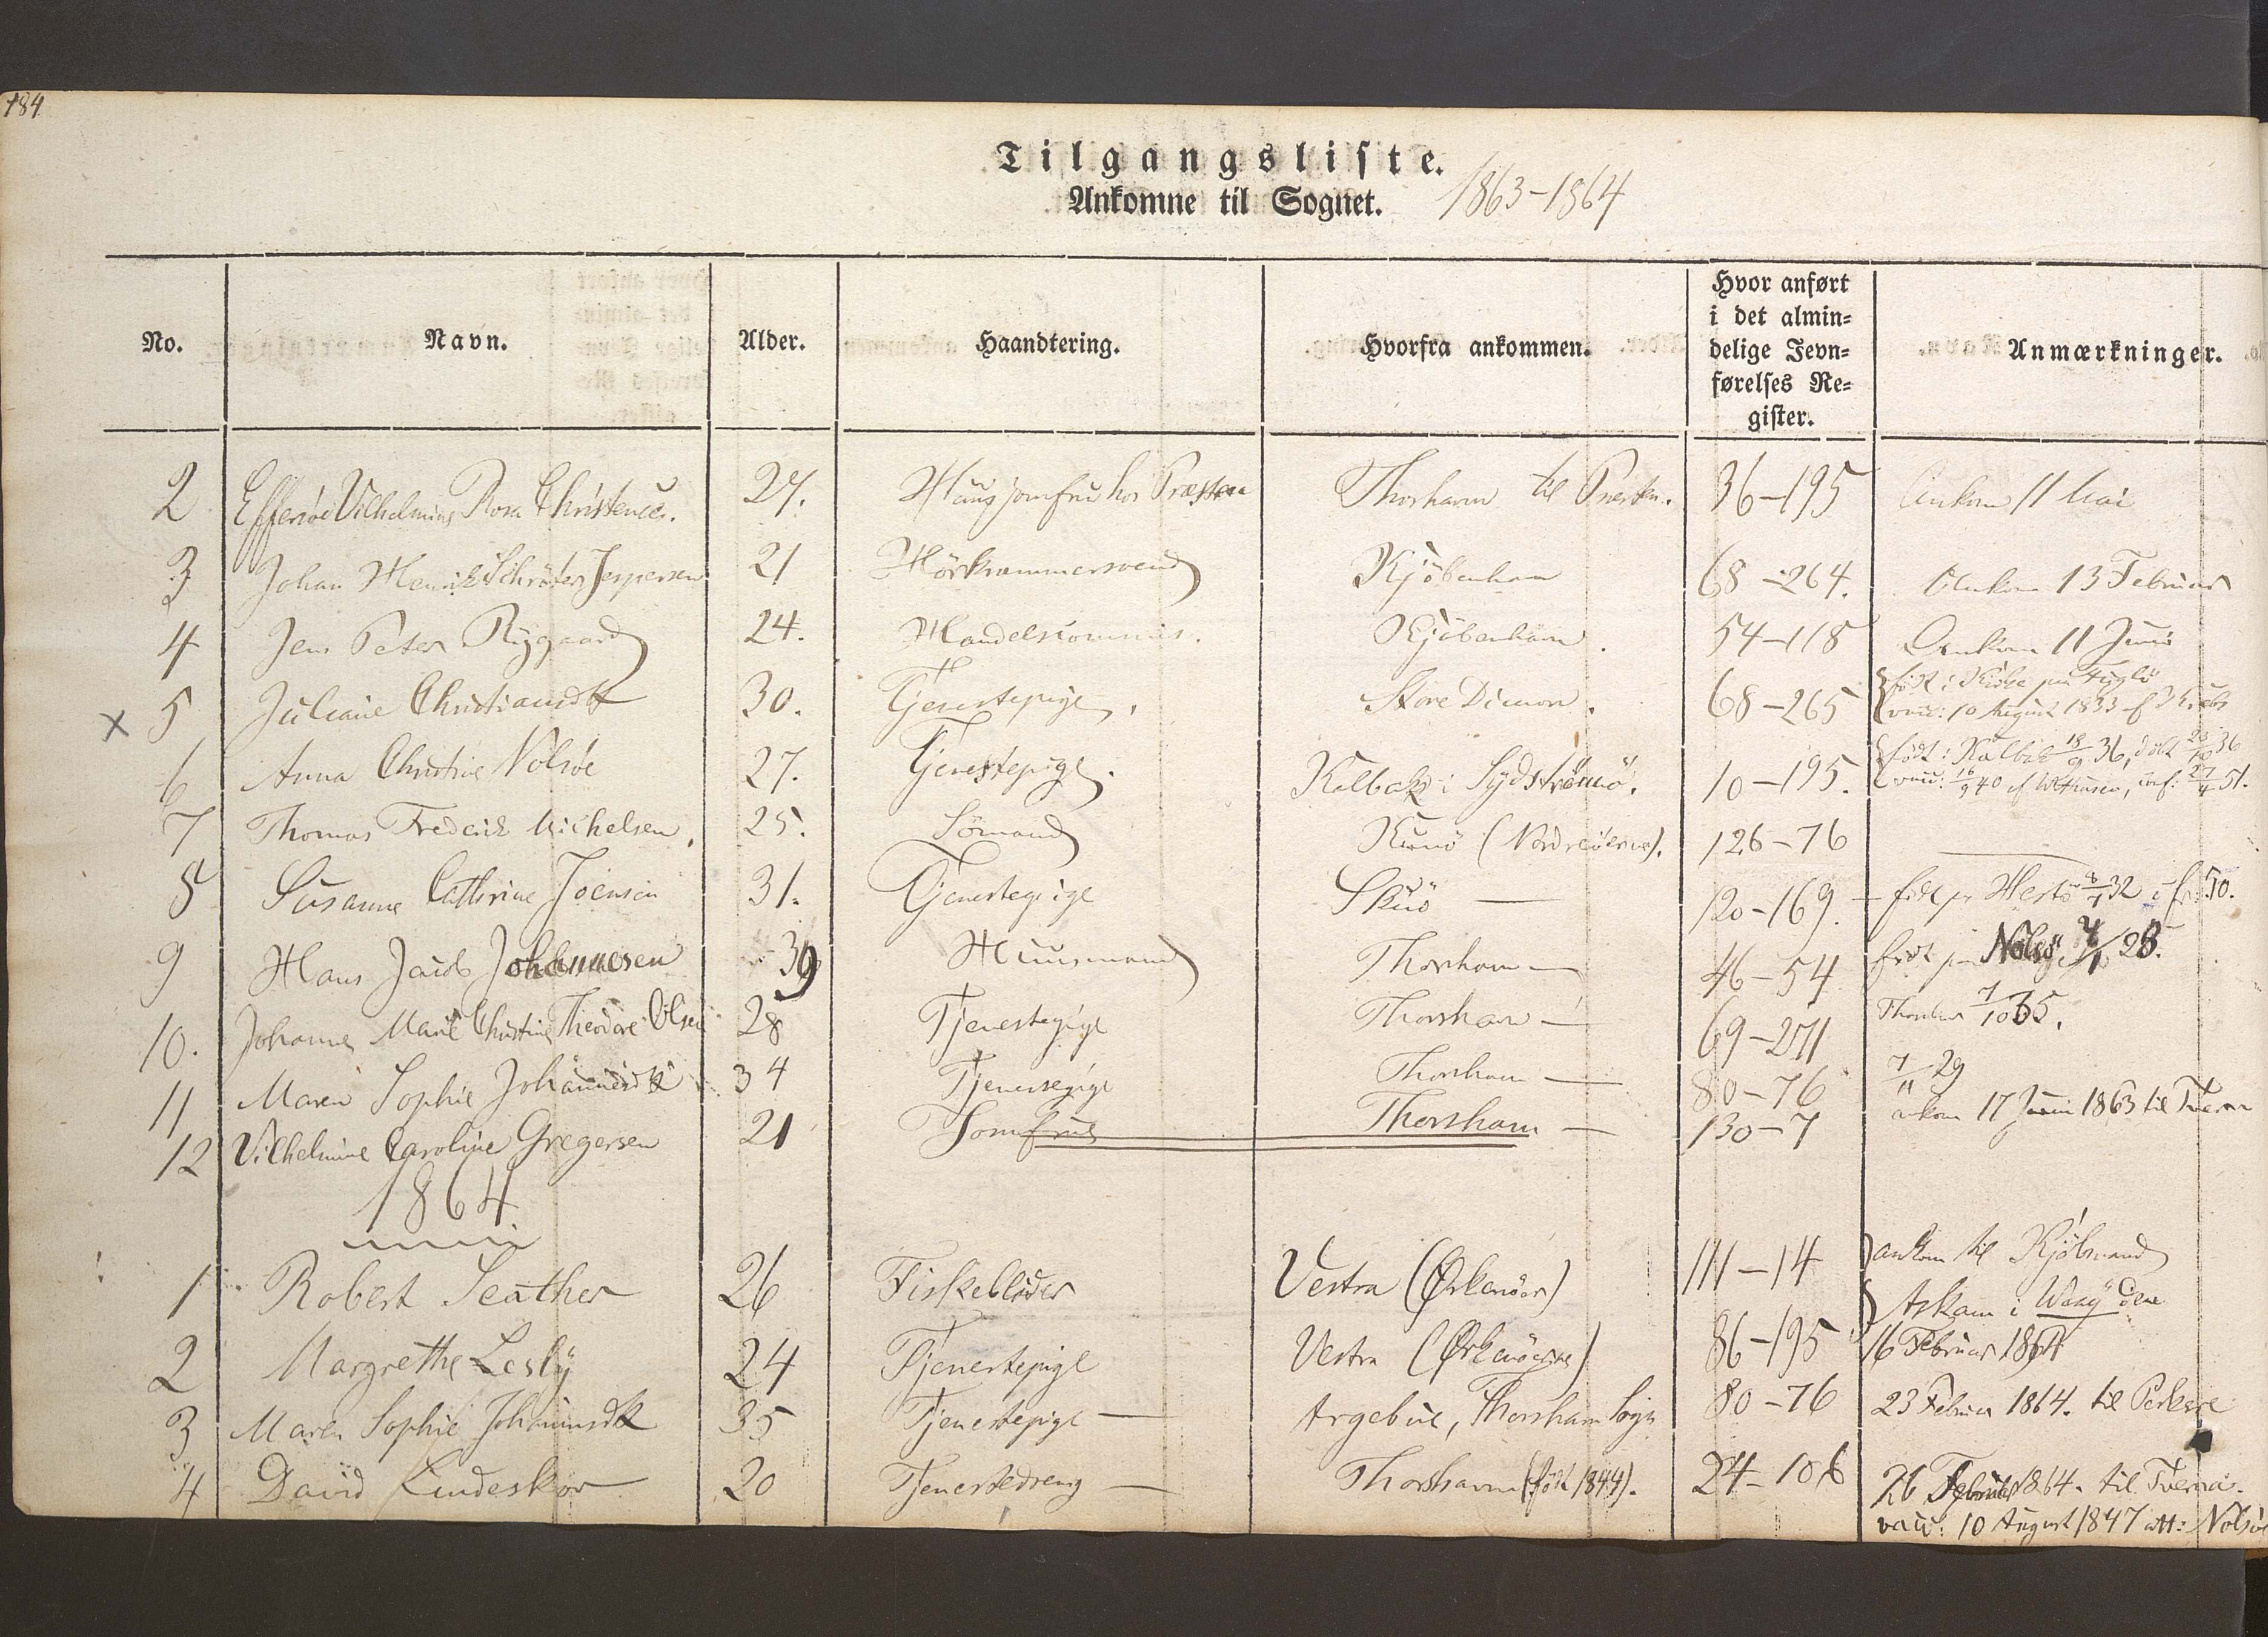 184
Tilgangsliste.
Ankomne til Sognet. 1863-1864
No. Navn. Alder. Haandtering. Hvorfra ankommen. Hvor anført i det almin= delige Jevn= førelses Re= gister. Anmærkninger.
2 Effersöe Vilhelmine Rosa Christence. 27. Huusjomfru hos Præsten Thorshavn til Præsten. 36-195 Ankom 11 Mai
3 Johan Henrik Schröter Jespersen 21 Hörkrammersvend Kjöbenhavn 68-264. Ankom 13 Februar
4 Jens Peter Rygaard 24. Handelscommis. Kjöbenhavn. 54-118 Ankom 11 Juni
X 5 Juliane Christiansdtr 30. Tjenestepige. Store Dimon. 68-265 født i Kirke paa Fuglö
vacc: 10 August 1833 af
6 Anna Christine Nolsöe 27. Tjenestepige. Kalbak i Sydströmö. 10-195. født i Kalbak 18/9 36, döbt 23/10 36
vacc: 16/9 40 af conf: 27/4 51.
7 Thomas Frederik Michelsen. 25. Sömand Kunö (Norderöerne). 126-76
8 Susanne Cathrine Joensen 31. Tjenestepige Skuö — 120-169. — född pa Hestö 32 50.
9 Hans Jacob Johannesen 39 Huusmand Thorshavn — 46-54 født paa Nolsö 28.
10. Johanne Marie Christine Theodore Olsen 28 Tjenestepige Thorshavn — 69-271 Thorshavn 7/10 35.
11 Maren Sophie Johannesdtr 34 Tjenestepige Thorshavn — 80-76 7/11 29
12 Vilhelmine Caroline Gregersen 21 Jomfrue Thorshavn — 130-7 ankom 17 Juni 1863 til Tveraa
1864
1 Robert Seather 26 Fiskeblöder Vestra (Ørkenöer) 111-14 ankom til Kjöbmand
2 Margrethe Lesly 24 Tjenestepige Vestra (Ørkenöerne) 86-195 Askam i Waag
16 Februar 1864
3 Maren Sophie Johannesdtr 35 Tjenestepige — Argebue, Thorshavn Sogn 80-76 23 Februar 1864. til Porkere
4 David Lindeskov 20 Tjenestedreng — Thorshavn (født 1844). 24-106 26 Februar 1864. til Tveraa.
vacc: 10 August 1847 att: Nolsöe